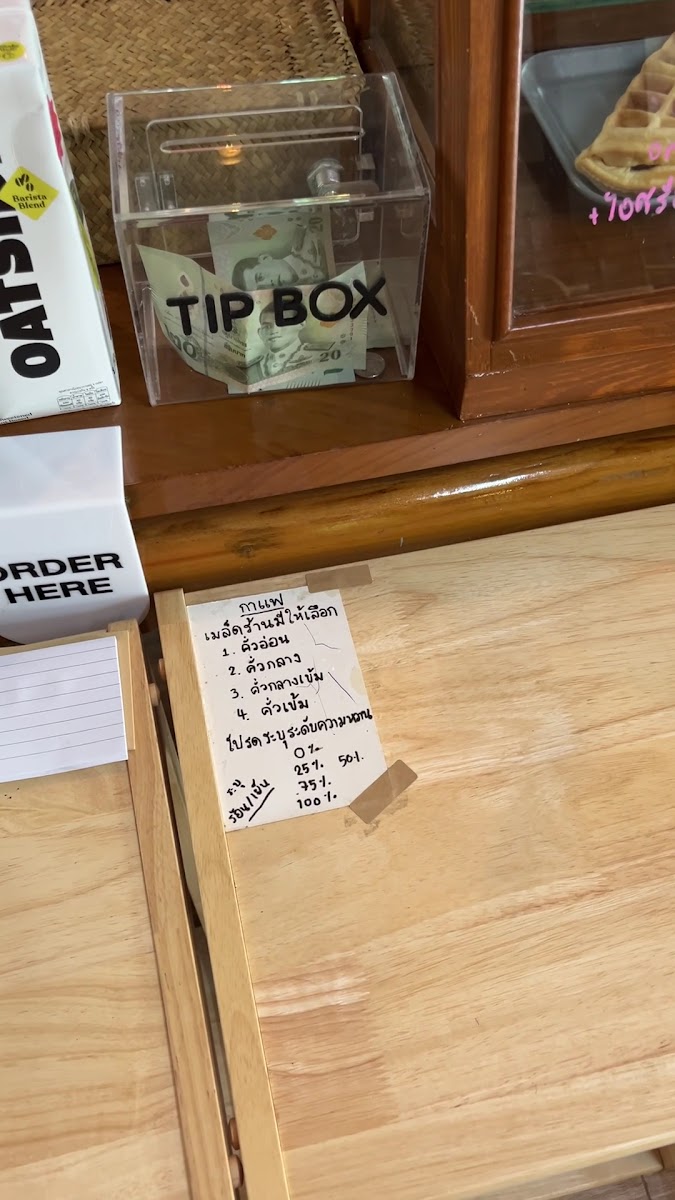 Barista
Blend
OATSI
TIP BOX
20
+ไอศรี
ORDER
HERE
กาแฟ
เมล็ดร้านมีให้เลือก
1. คั่วอ่อน
2. คั่วกลาง
3. คั่วกลางเข้ม
4. คั่วเข้ม
โปรดระบุระดับความหวาน
0%
25% 50%
75%
100%
ระบุ
ร้อน/เย็น